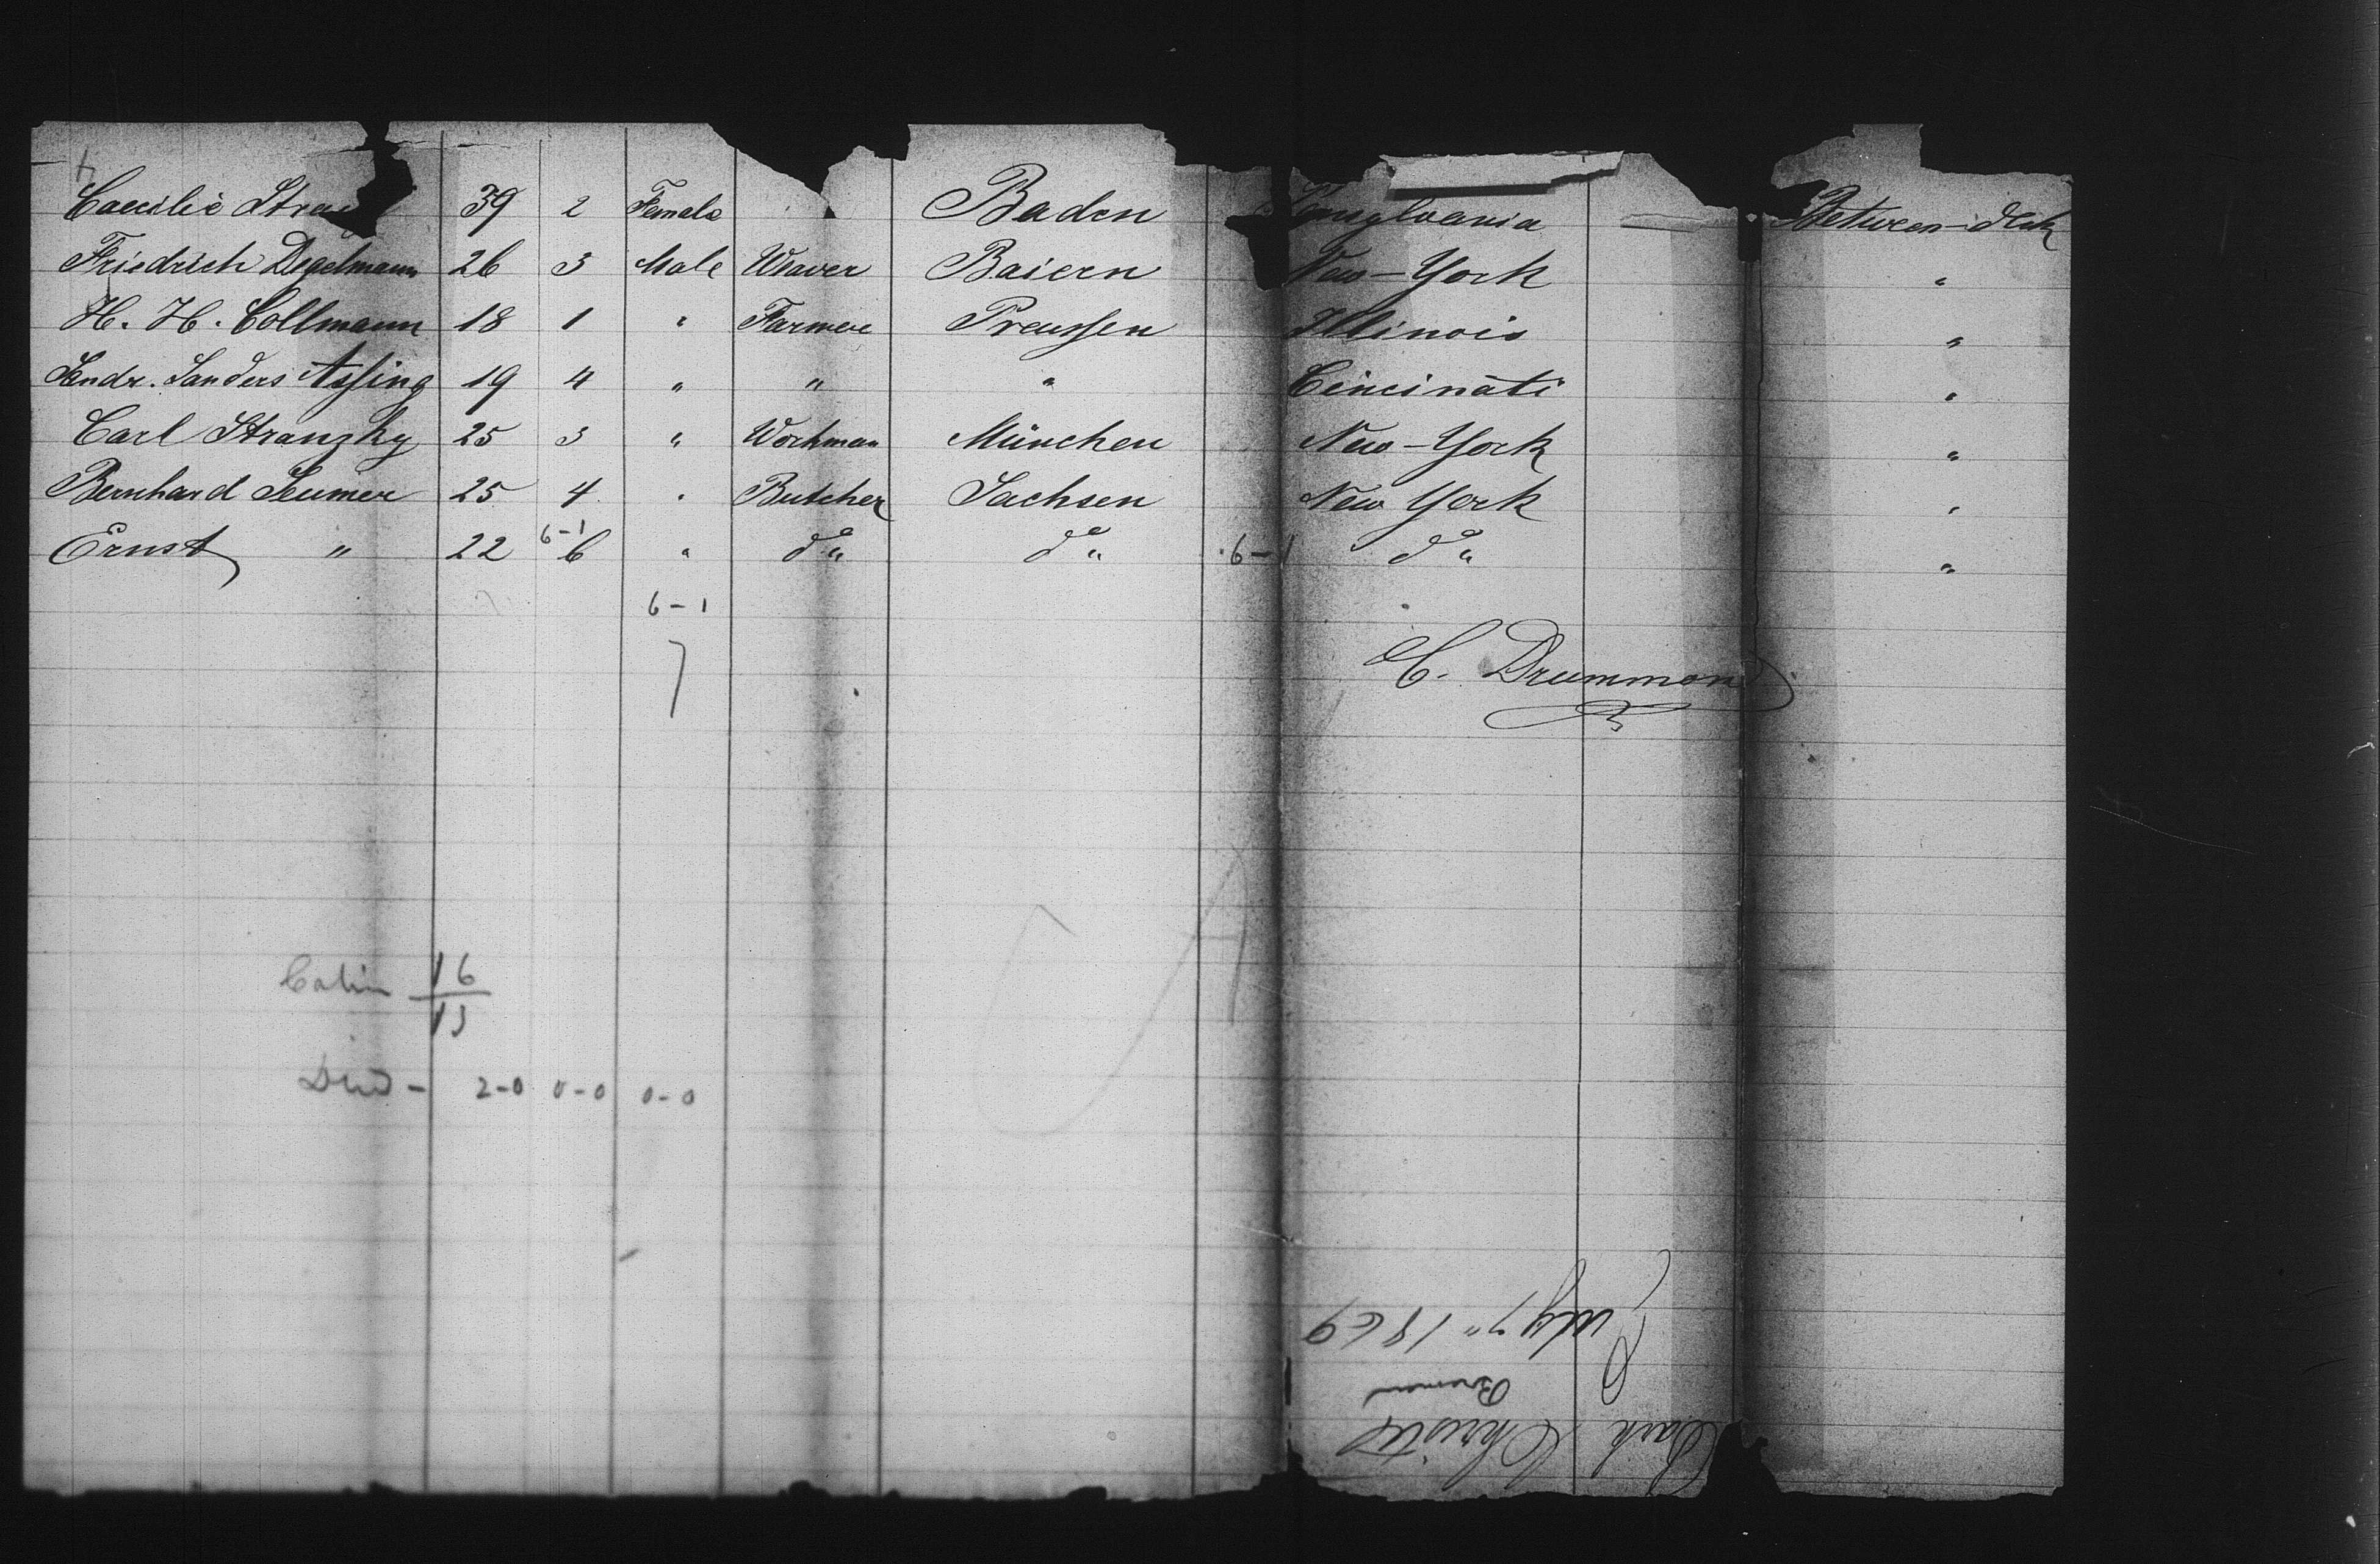 Caecilie 39 2 Female Baden Pensylvania Between-deck
Friedrich Degelmann 26 3 Male Weaver Baiern New-York "
H. H. Collmann 18 1 " Farmer Preussen Illinois "
Sanders Assing 19 4 " " " Cincinati "
Carl Stranzky 25 3 " Workman München New-York "
Bernhard Seumer 25 4 " Butcher Sachsen New York "
Ernst " 22 6 " do " do " 6-1 do " "
6-1
6-1
7
C. Drummond
Cabin 16
13
Died - 2-0 0-0 0-0
July 7" 1869
Bremen
Bark Christel